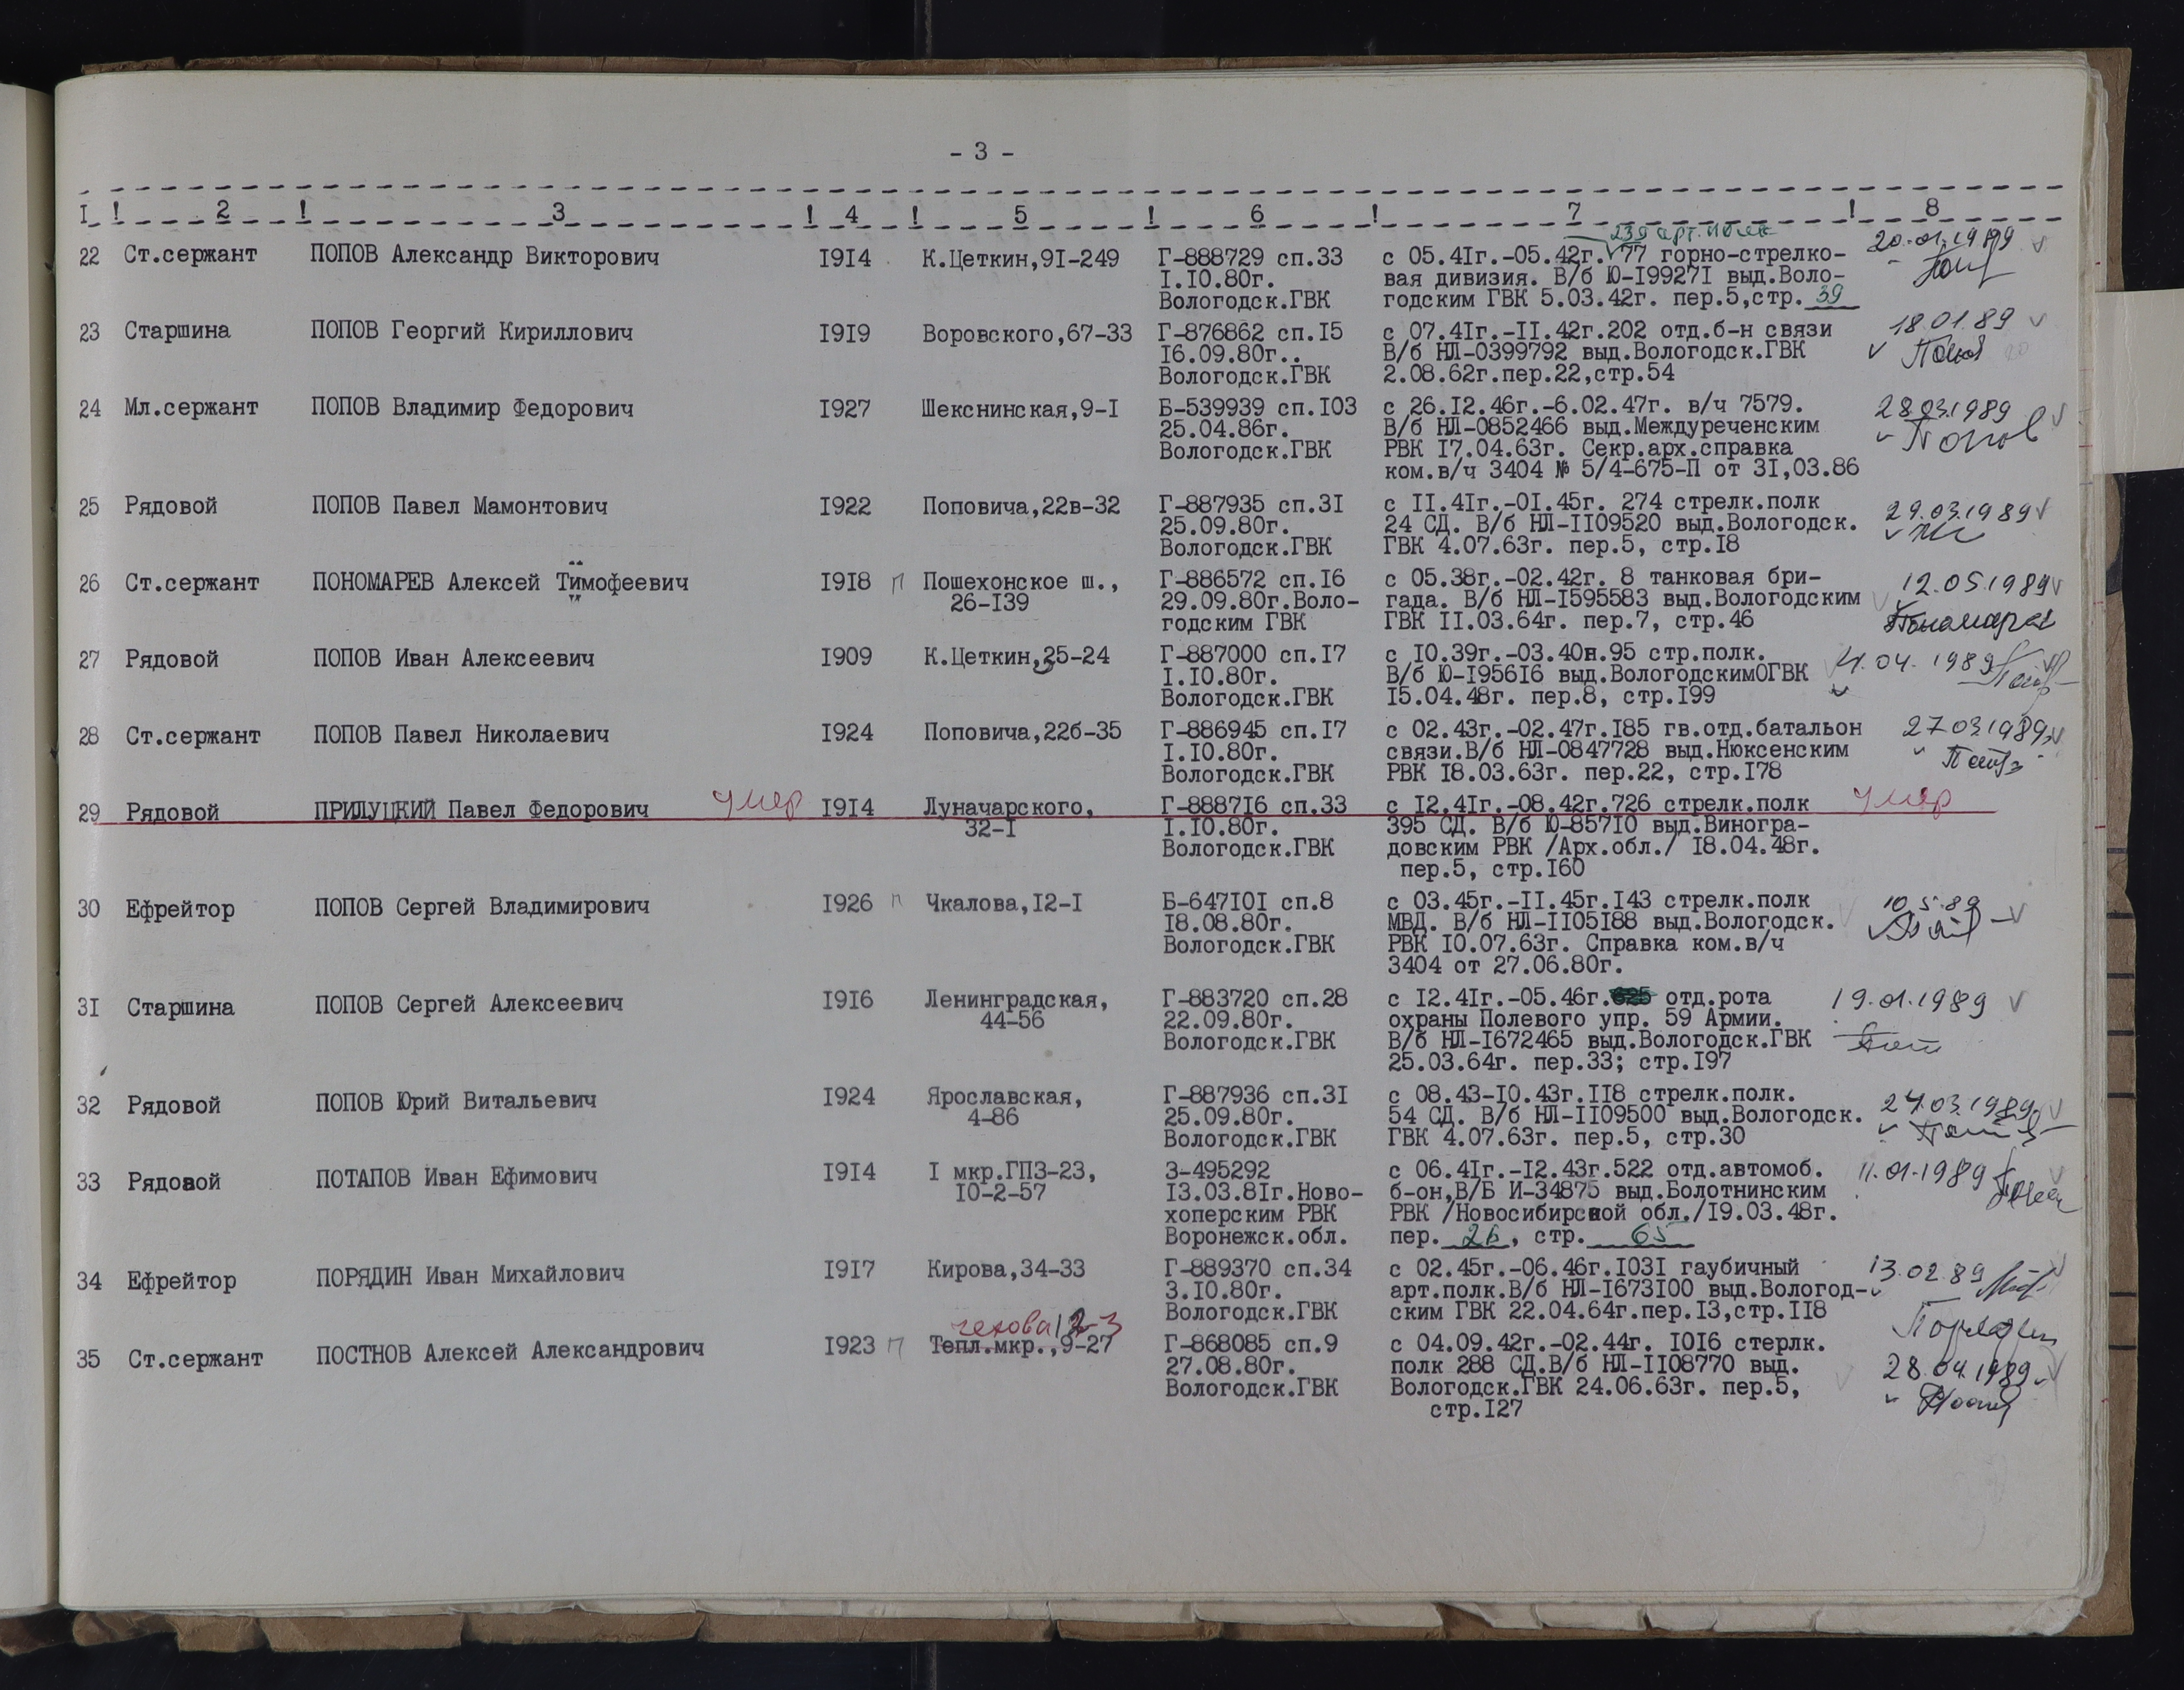 - 3 -
I ! 2 ! 3 ! 4 ! 5 ! 6 ! 7 ! 8
239 арт. полк
22 Ст.сержант ПОПОВ Александр Викторович I9I4 К.Цеткин,9I-249 Г-888729 сп.33 с 05.4Iг.-05.42г. 77 горно-стрелко- 20.01.1989
I.I0.80г. вая дивизия. В/б Ю-I9927I выд.Воло-
Вологодск.ГВК годским ГВК 5.03.42г. пер.5,стр. 39
23 Старшина ПОПОВ Георгий Кириллович I9I9 Воровского,67-33 Г-876862 сп.I5 с 07.4Iг.-II.42г.202 отд.б-н связи 18.01.89
I6.09.80г.. В/б НЛ-0399792 выд.Вологодск.ГВК
Вологодск.ГВК 2.08.62г.пер.22,стр.54
24 Мл.сержант ПОПОВ Владимир Федорович I927 Шекснинская,9-I Б-539939 сп.I03 с 26.I2.46г.-6.02.47г. в/ч 7579. 28.03.1989
25.04.86г. В/б НЛ-0852466 выд.Междуреченским Попов
Вологодск.ГВК РВК I7.04.63г. Секр.арх.справка
ком.в/ч 3404 № 5/4-675-П от 3I,03.86
25 Рядовой ПОПОВ Павел Мамонтович I922 Поповича,22в-32 Г-887935 сп.3I с II.4Iг.-0I.45г. 274 стрелк.полк 29.03.1989
25.09.80г. 24 СД. В/б НЛ-II09520 выд.Вологодск.
Вологодск.ГВК ГВК 4.07.63г. пер.5, стр.I8
26 Ст.сержант ПОНОМАРЕВ Алексей Тимофеевич I9I8 П Пошехонское ш., Г-886572 сп.I6 с 05.38г.-02.42г. 8 танковая бри- 12.05.1989
26-I39 29.09.80г.Воло- гада. В/б НЛ-I595583 выд.Вологодским
годским ГВК ГВК II.03.64г. пер.7, стр.46
27 Рядовой ПОПОВ Иван Алексеевич I909 К.Цеткин,25-24 Г-887000 сп.I7 с I0.39г.-03.40н.95 стр.полк. 04.1989
I.I0.80г. В/б Ю-I956I6 выд.ВологодскимОГВК
Вологодск.ГВК I5.04.48г. пер.8, стр.I99
28 Ст.сержант ПОПОВ Павел Николаевич I924 Поповича,22б-35 Г-886945 сп.I7 с 02.43г.-02.47г.I85 гв.отд.батальон 27.03.1989
I.I0.80г. связи.В/б НЛ-0847728 выд.Нюксенским
Вологодск.ГВК РВК I8.03.63г. пер.22, стр.I78
29 Рядовой ПРИЛУЦКИЙ Павел Федорович умер I9I4 Луначарского, Г-8887I6 сп.33 с I2.4Iг.-08.42г.726 стрелк.полк умер
32-I I.I0.80г. 395 СД. В/б Ю-857I0 выд.Виногра-
Вологодск.ГВК довским РВК /Арх.обл./ I8.04.48г.
пер.5, стр.I60
30 Ефрейтор ПОПОВ Сергей Владимирович I926 п Чкалова,I2-I Б-647I0I сп.8 с 03.45г.-II.45г.I43 стрелк.полк 10.5.89
I8.08.80г. МВД. В/б НЛ-II05I88 выд.Вологодск.
Вологодск.ГВК РВК I0.07.63г. Справка ком.в/ч
3404 от 27.06.80г.
3I Старшина ПОПОВ Сергей Алексеевич I9I6 Ленинградская, Г-883720 сп.28 с I2.4Iг.-05.46г. отд.рота 19.01.1989
44-56 22.09.80г. охраны Полевого упр. 59 Армии.
Вологодск.ГВК В/б НЛ-I672465 выд.Вологодск.ГВК
25.03.64г. пер.33; стр.I97
32 Рядовой ПОПОВ Юрий Витальевич I924 Ярославская, Г-887936 сп.3I с 08.43-I0.43г.II8 стрелк.полк. 24.03.1989
4-86 25.09.80г. 54 СД. В/б НЛ-II09500 выд.Вологодск.
Вологодск.ГВК ГВК 4.07.63г. пер.5, стр.30
33 Рядовой ПОТАПОВ Иван Ефимович I9I4 I мкр.ГПЗ-23, З-495292 с 06.4Iг.-I2.43г.522 отд.автомоб. 11.01.1989
I0-2-57 I3.03.8Iг.Ново- б-он,В/Б И-34875 выд.Болотнинским
хоперским РВК РВК /Новосибирской обл./I9.03.48г.
Воронежск.обл. пер. 26, стр. 65
34 Ефрейтор ПОРЯДИН Иван Михайлович I9I7 Кирова,34-33 Г-889370 сп.34 с 02.45г.-06.46г.I03I гаубичный 13.02.89
3.I0.80г. арт.полк.В/б НЛ-I673I00 выд.Вологод-
Вологодск.ГВК ским ГВК 22.04.64г.пер.I3,стр.II8 Порядин
чехова 12-3
35 Ст.сержант ПОСТНОВ Алексей Александрович I923 П Тепл.мкр.,9-27 Г-868085 сп.9 с 04.09.42г.-02.44г. I0I6 стерлк.
27.08.80г. полк 288 СД.В/б НЛ-II08770 выд. 28.04.1989
Вологодск.ГВК Вологодск.ГВК 24.06.63г. пер.5,
стр.I27